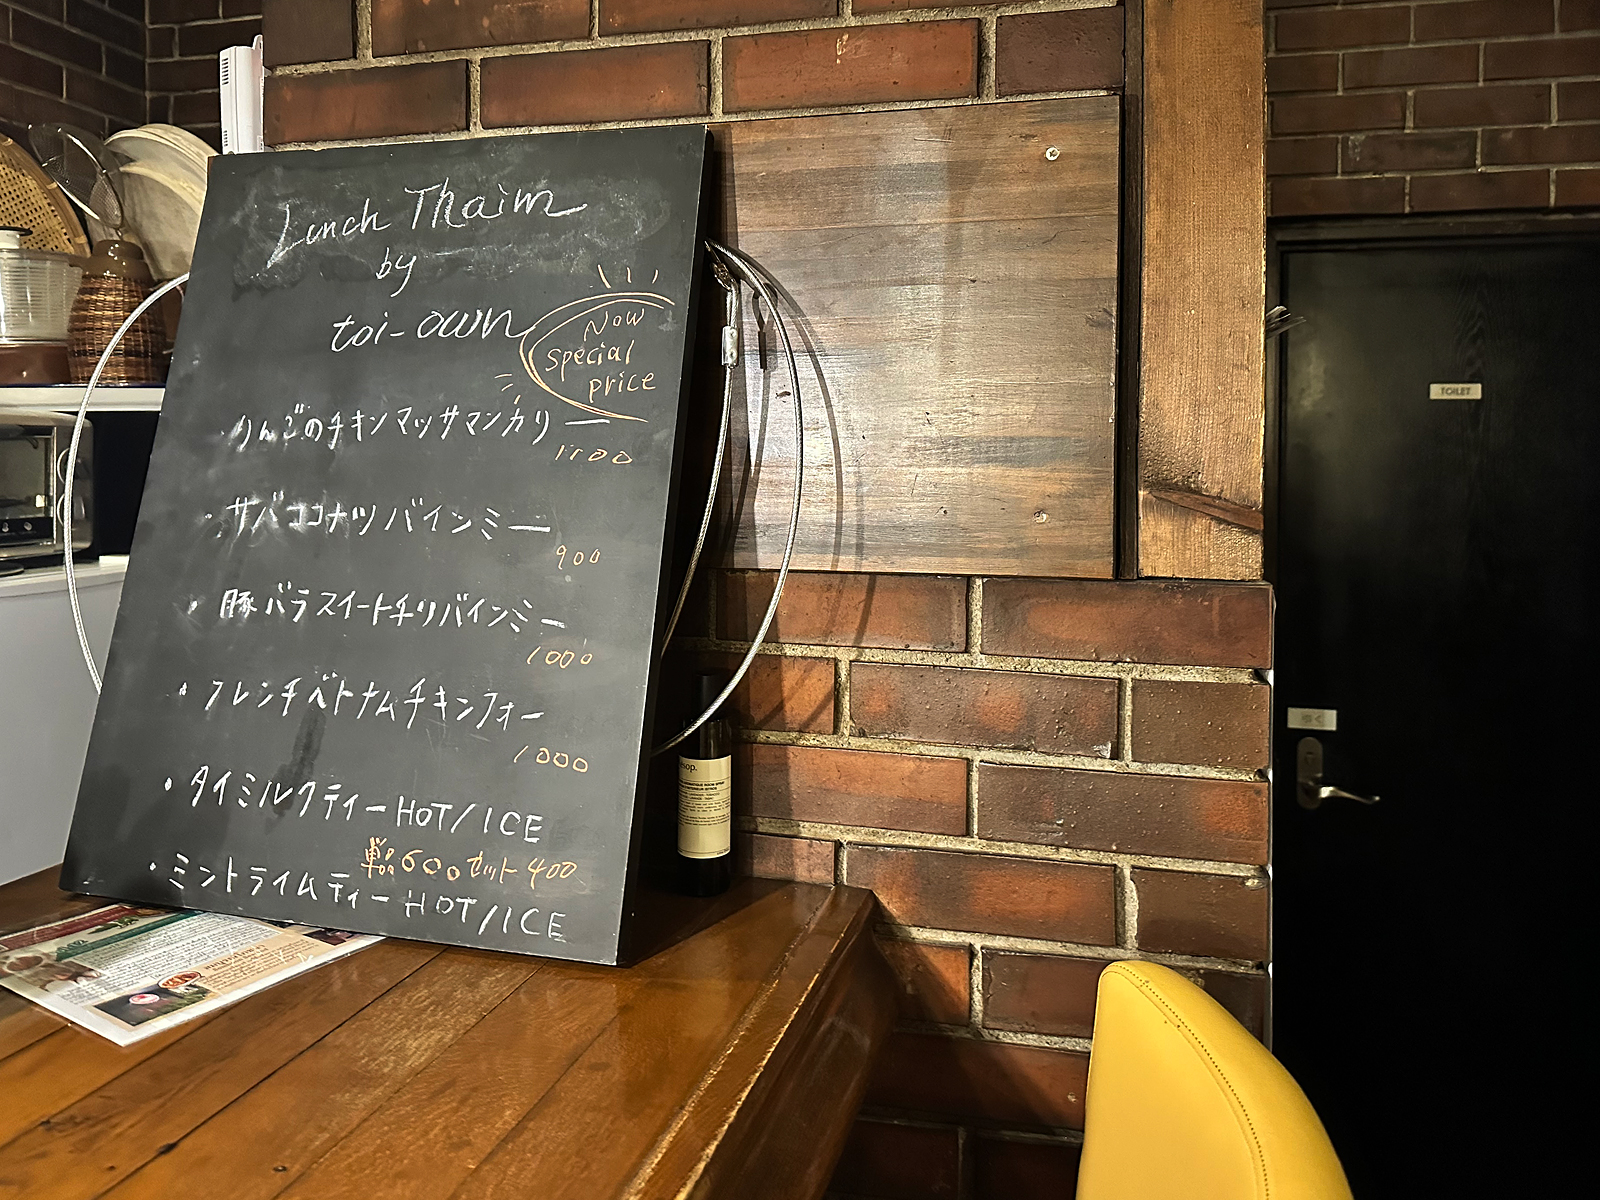 Lunch Thaim
by
toi-own
Now
special
price
・りんごのチキンマッサマンカリー
1100
・サバココナツバインミー
900
・豚バラスイートチリバインミー
1000
・フレンチベトナムチキンフォー
1000
・タイミルクティーHOT/ICE
単品600セット400
・ミントライムティーHOT/ICE
TOILET